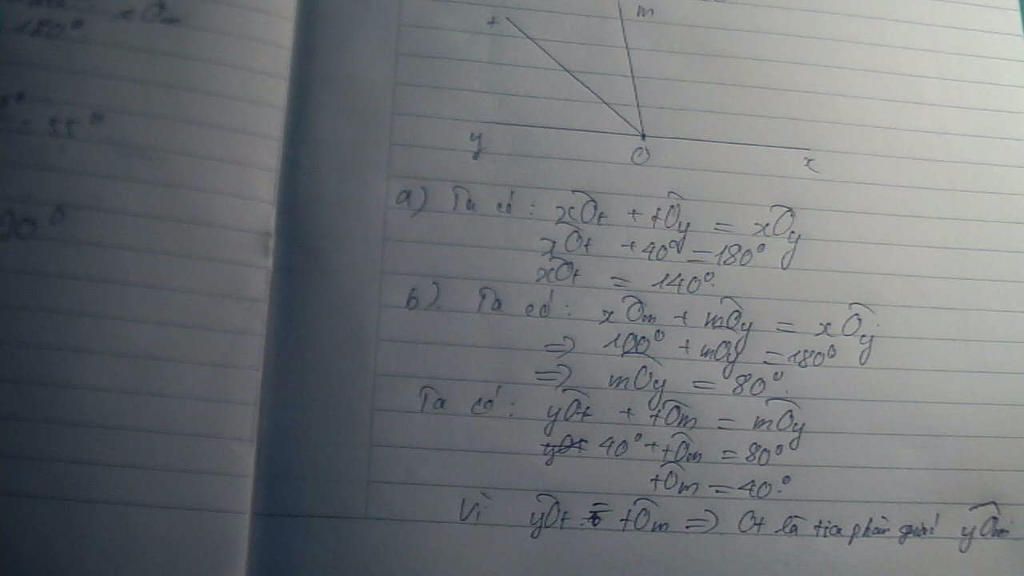 180°
= 55°
90°
t
m
y
O
x
a) Ta có: xOt + tOy = xOy
xOt + 40° = 180°
xOt = 140°.
b) Ta có: xOm + mOy = xOy
=> 100° + mOy = 180°
=> mOy = 80°.
Ta có: yOt + tOm = mOy
40° + tOm = 80°
tOm = 40°
Vì yOt = tOm => Ot là tia phân giác yOm